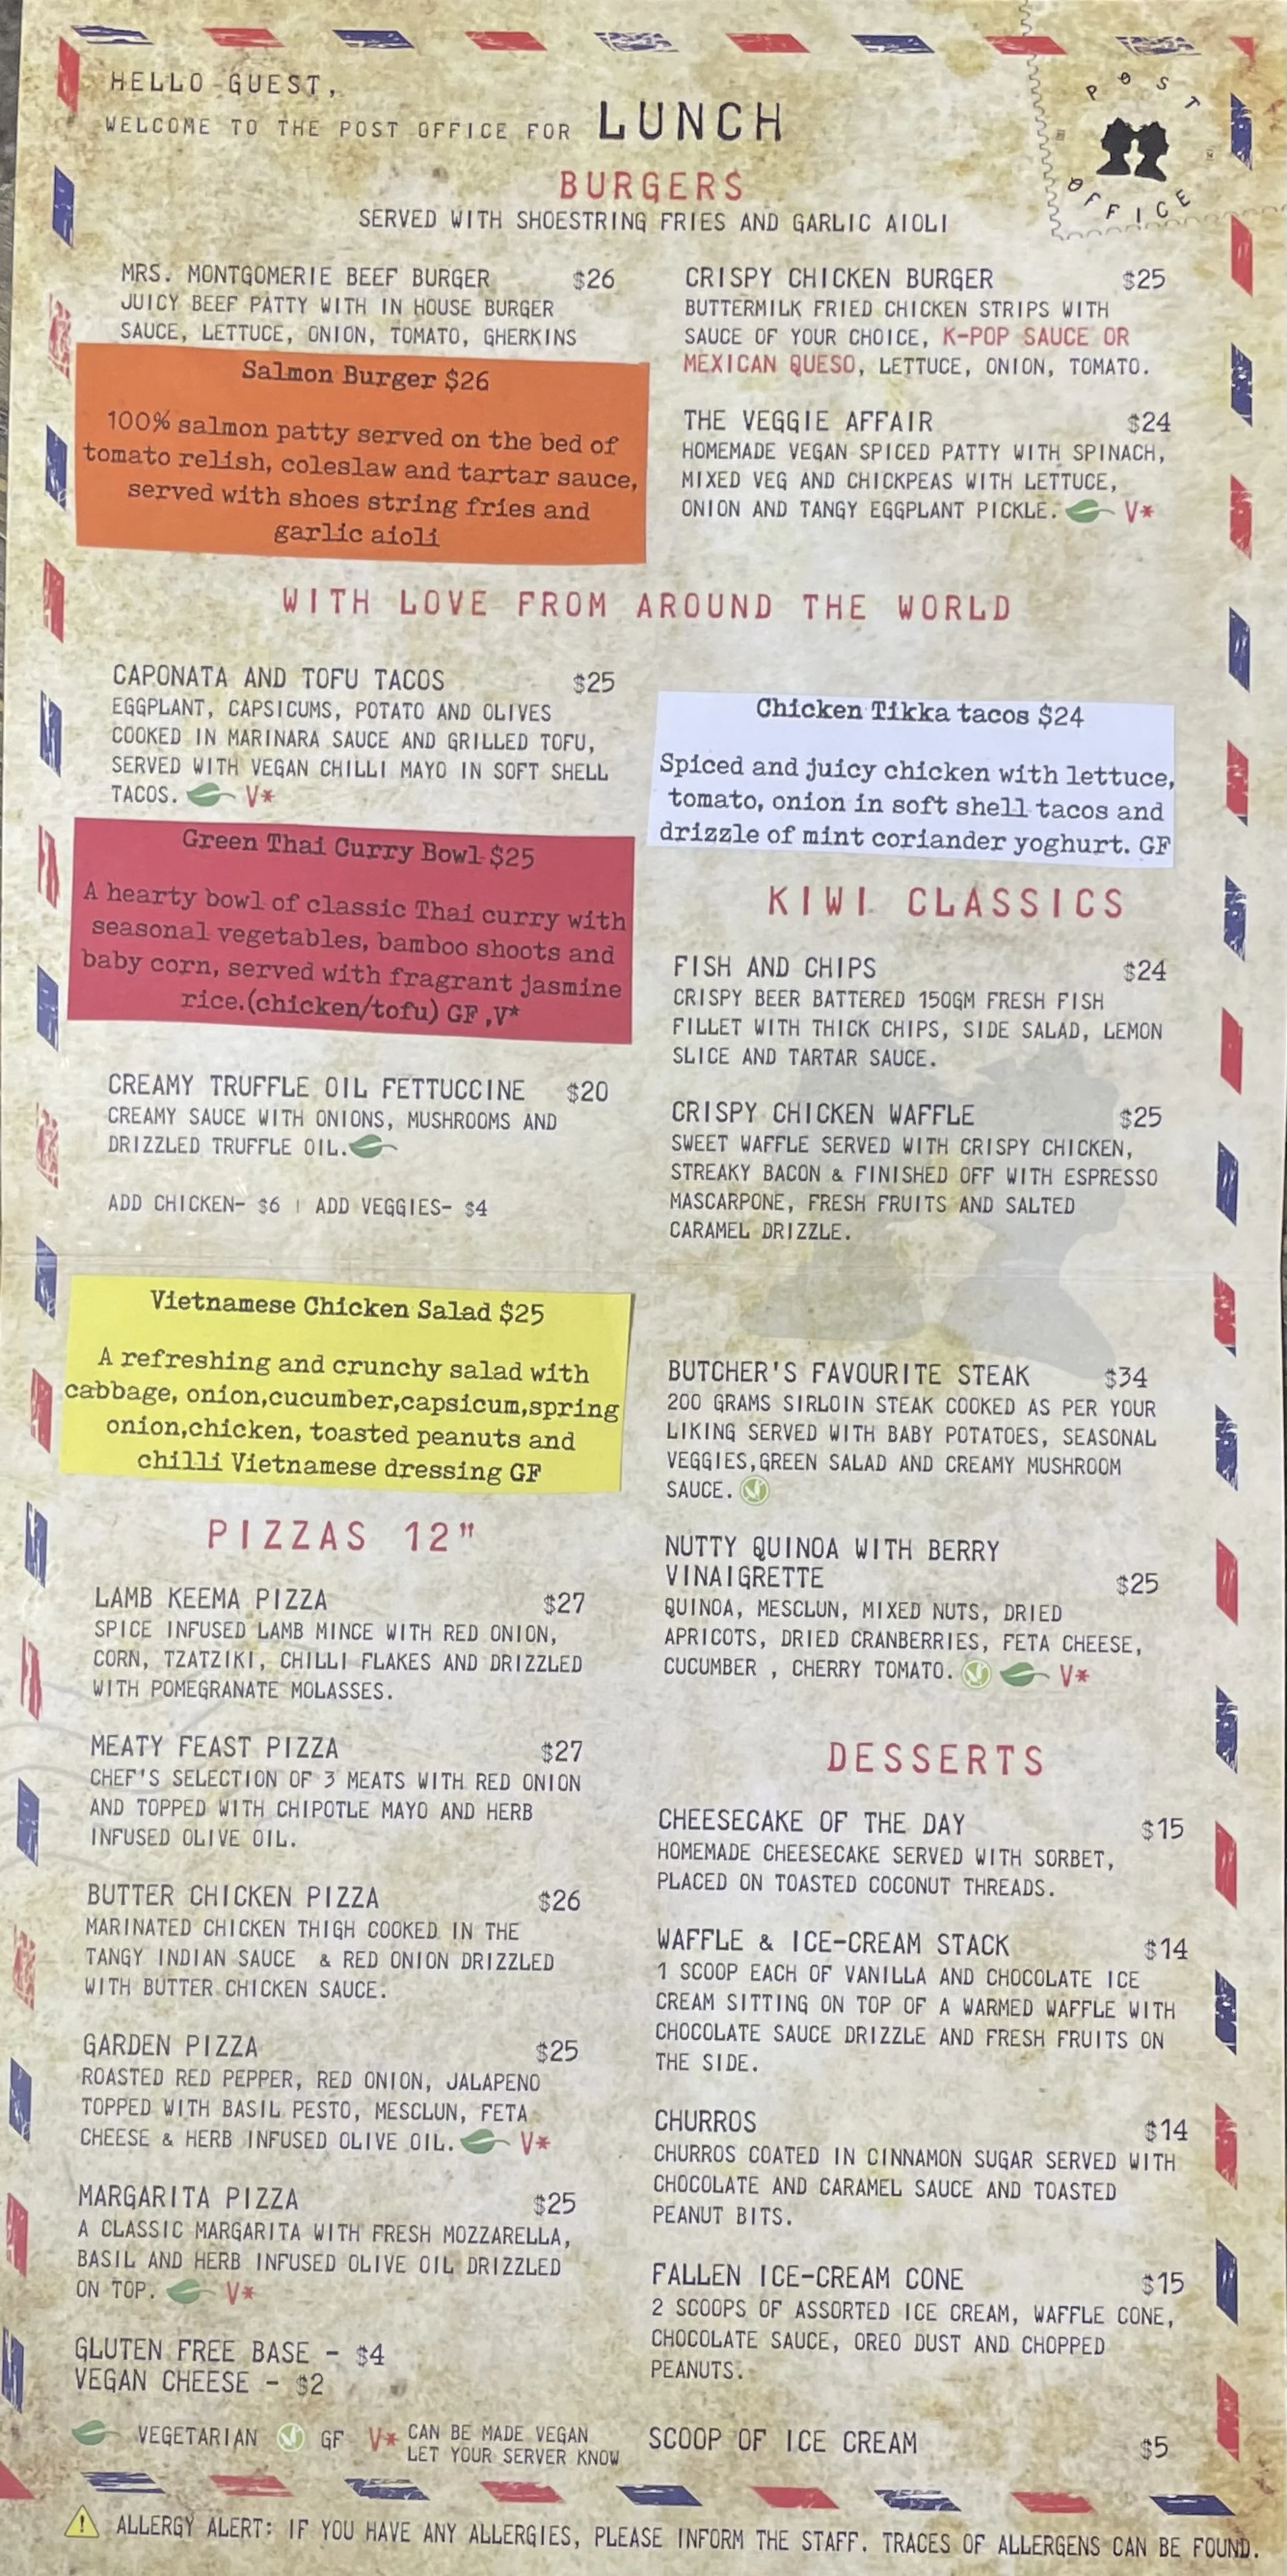 HELLO GUEST,
WELCOME TO THE POST OFFICE FOR LUNCH
POST
OFFICE
BURGERS
SERVED WITH SHOESTRING FRIES AND GARLIC AIOLI
MRS. MONTGOMERIE BEEF BURGER $26
JUICY BEEF PATTY WITH IN HOUSE BURGER
SAUCE, LETTUCE, ONION, TOMATO, GHERKINS
Salmon Burger $26
100% salmon patty served on the bed of
tomato relish, coleslaw and tartar sauce,
served with shoes string fries and
garlic aioli
CRISPY CHICKEN BURGER $25
BUTTERMILK FRIED CHICKEN STRIPS WITH
SAUCE OF YOUR CHOICE, K-POP SAUCE OR
MEXICAN QUESO, LETTUCE, ONION, TOMATO.
THE VEGGIE AFFAIR $24
HOMEMADE VEGAN SPICED PATTY WITH SPINACH,
MIXED VEG AND CHICKPEAS WITH LETTUCE,
ONION AND TANGY EGGPLANT PICKLE. V*
WITH LOVE FROM AROUND THE WORLD
CAPONATA AND TOFU TACOS $25
EGGPLANT, CAPSICUMS, POTATO AND OLIVES
COOKED IN MARINARA SAUCE AND GRILLED TOFU,
SERVED WITH VEGAN CHILLI MAYO IN SOFT SHELL
TACOS. V*
Green Thai Curry Bowl $25
A hearty bowl of classic Thai curry with
seasonal vegetables, bamboo shoots and
baby corn, served with fragrant jasmine
rice.(chicken/tofu) GF ,V*
CREAMY TRUFFLE OIL FETTUCCINE $20
CREAMY SAUCE WITH ONIONS, MUSHROOMS AND
DRIZZLED TRUFFLE OIL.
ADD CHICKEN- $6 | ADD VEGGIES- $4
Vietnamese Chicken Salad $25
A refreshing and crunchy salad with
cabbage, onion,cucumber,capsicum,spring
onion,chicken, toasted peanuts and
chilli Vietnamese dressing GF
Chicken Tikka tacos $24
Spiced and juicy chicken with lettuce,
tomato, onion in soft shell tacos and
drizzle of mint coriander yoghurt. GF
KIWI CLASSICS
FISH AND CHIPS $24
CRISPY BEER BATTERED 150GM FRESH FISH
FILLET WITH THICK CHIPS, SIDE SALAD, LEMON
SLICE AND TARTAR SAUCE.
CRISPY CHICKEN WAFFLE $25
SWEET WAFFLE SERVED WITH CRISPY CHICKEN,
STREAKY BACON & FINISHED OFF WITH ESPRESSO
MASCARPONE, FRESH FRUITS AND SALTED
CARAMEL DRIZZLE.
BUTCHER'S FAVOURITE STEAK $34
200 GRAMS SIRLOIN STEAK COOKED AS PER YOUR
LIKING SERVED WITH BABY POTATOES, SEASONAL
VEGGIES,GREEN SALAD AND CREAMY MUSHROOM
SAUCE.
NUTTY QUINOA WITH BERRY
VINAIGRETTE $25
QUINOA, MESCLUN, MIXED NUTS, DRIED
APRICOTS, DRIED CRANBERRIES, FETA CHEESE,
CUCUMBER , CHERRY TOMATO. V*
PIZZAS 12"
LAMB KEEMA PIZZA $27
SPICE INFUSED LAMB MINCE WITH RED ONION,
CORN, TZATZIKI, CHILLI FLAKES AND DRIZZLED
WITH POMEGRANATE MOLASSES.
MEATY FEAST PIZZA $27
CHEF'S SELECTION OF 3 MEATS WITH RED ONION
AND TOPPED WITH CHIPOTLE MAYO AND HERB
INFUSED OLIVE OIL.
BUTTER CHICKEN PIZZA $26
MARINATED CHICKEN THIGH COOKED IN THE
TANGY INDIAN SAUCE & RED ONION DRIZZLED
WITH BUTTER CHICKEN SAUCE.
GARDEN PIZZA $25
ROASTED RED PEPPER, RED ONION, JALAPENO
TOPPED WITH BASIL PESTO, MESCLUN, FETA
CHEESE & HERB INFUSED OLIVE OIL. V*
MARGARITA PIZZA $25
A CLASSIC MARGARITA WITH FRESH MOZZARELLA,
BASIL AND HERB INFUSED OLIVE OIL DRIZZLED
ON TOP. V*
GLUTEN FREE BASE - $4
VEGAN CHEESE - $2
DESSERTS
CHEESECAKE OF THE DAY $15
HOMEMADE CHEESECAKE SERVED WITH SORBET,
PLACED ON TOASTED COCONUT THREADS.
WAFFLE & ICE-CREAM STACK $14
1 SCOOP EACH OF VANILLA AND CHOCOLATE ICE
CREAM SITTING ON TOP OF A WARMED WAFFLE WITH
CHOCOLATE SAUCE DRIZZLE AND FRESH FRUITS ON
THE SIDE.
CHURROS $14
CHURROS COATED IN CINNAMON SUGAR SERVED WITH
CHOCOLATE AND CARAMEL SAUCE AND TOASTED
PEANUT BITS.
FALLEN ICE-CREAM CONE $15
2 SCOOPS OF ASSORTED ICE CREAM, WAFFLE CONE,
CHOCOLATE SAUCE, OREO DUST AND CHOPPED
PEANUTS.
SCOOP OF ICE CREAM $5
VEGETARIAN GF V* CAN BE MADE VEGAN
LET YOUR SERVER KNOW
ALLERGY ALERT: IF YOU HAVE ANY ALLERGIES, PLEASE INFORM THE STAFF. TRACES OF ALLERGENS CAN BE FOUND.